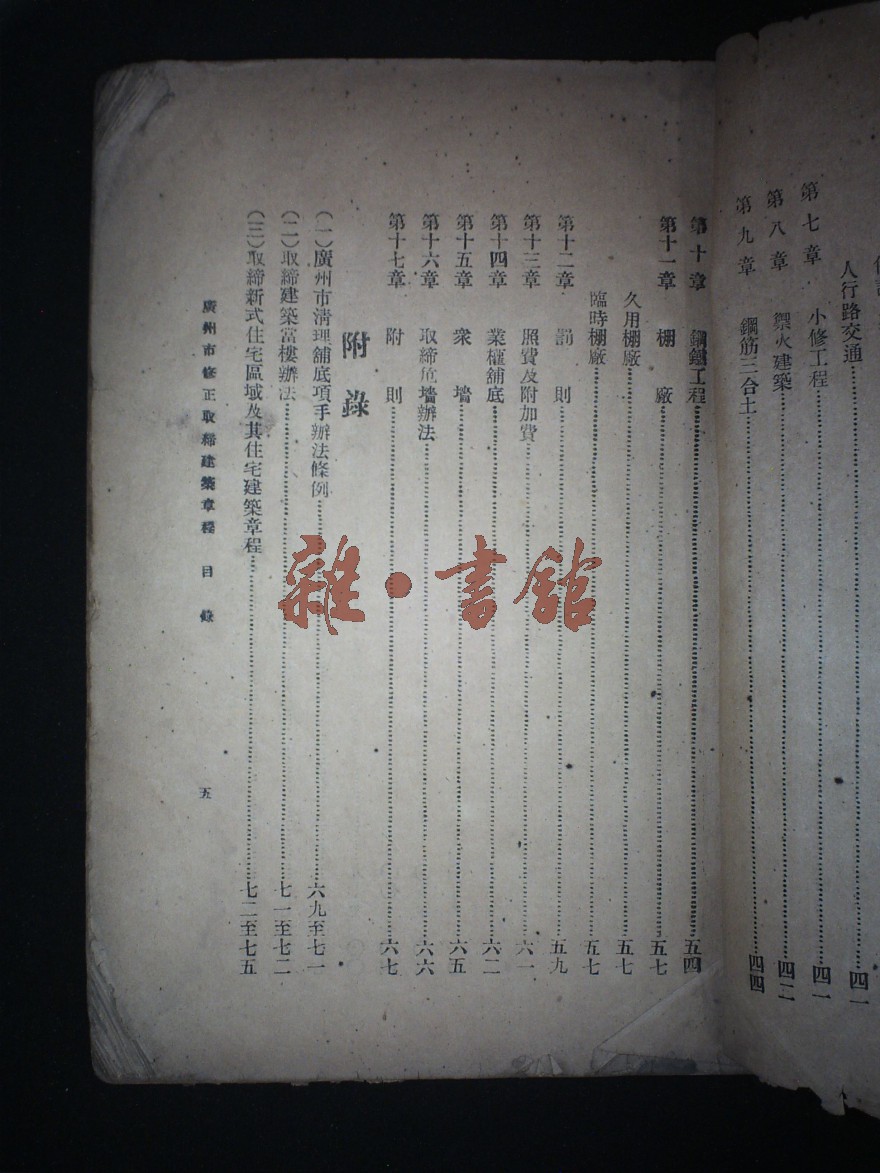 人行路交通……四一
第七章 小修工程……四一
第八章 禦火建築……四二
第九章 鋼筋三合土……四四
第十章 鋼鐵工程……五四
第十一章 棚廠……五七
久用棚廠……五七
臨時棚廠……五七
第十二章 罰則……五九
第十三章 照費及附加費……六一
第十四章 業權舖底……六二
第十五章 衆墻……六五
第十六章 取締危墻辦法……六六
第十七章 附則……六七
附錄
(一)廣州市清理舖底頂手辦法條例……六九至七一
(二)取締建築當樓辦法……七一至七二
(三)取締新式住宅區域及其住宅建築章程……七二至七五
廣州市修正取締建築章程 目錄 五
雜·書館